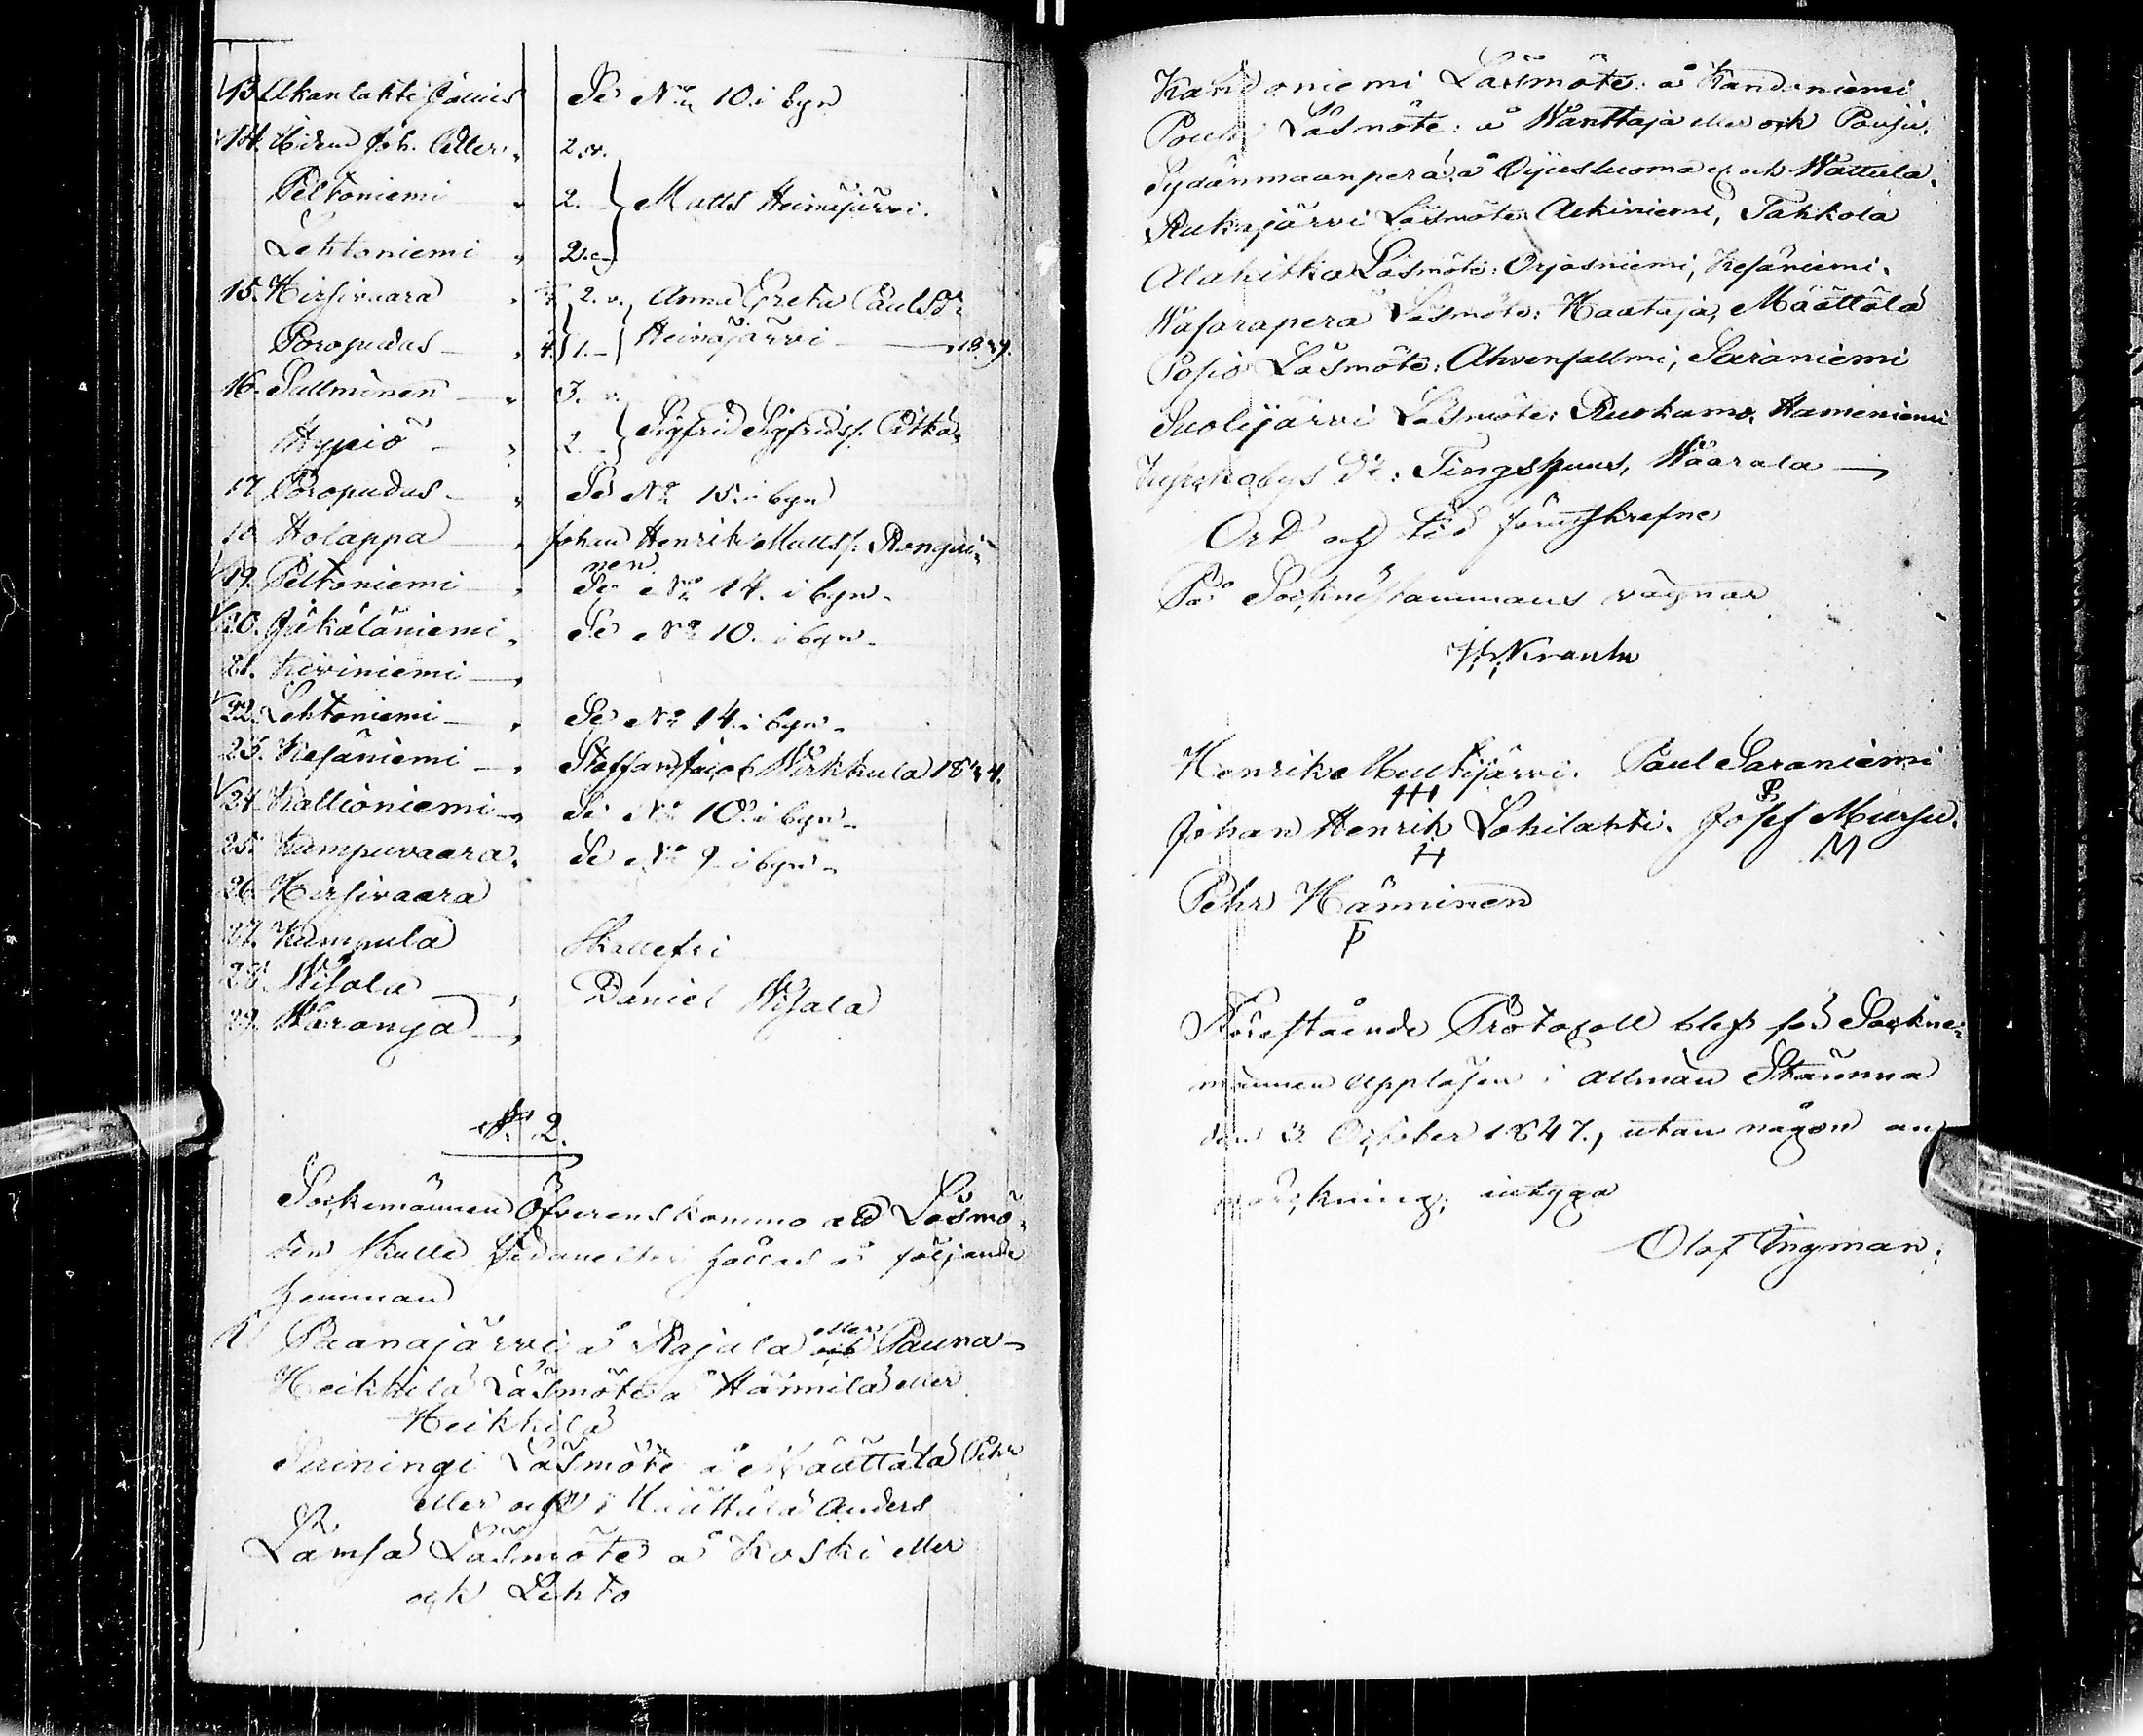 13. Akanlahti Julius Se No 10. i byn
14. Hiden Joh. Adler „ 2. v.
Peltoniemi „ 2. } Matts Heinäjärvi.
Lehtoniemi „ 2.
15. Hirsivaara „ 2. v. Anna Greta Paulsdr
Poropudas „ 4. 1. Heinäjärvi 1839.
16. Sallminen „ 3. v.
Hypiö „ 2. } Sigfrid Sigfridss. Pitkä-
17. Poropudas „ Se No 15. i byn
18. Holappa „ Johan Henrik Mattss. Ronqui-
nen.
19. Peltoniemi „ Se No 14. i byn.
20. Jäkäläniemi „ Se No 10. i byn.
21. Kiviniemi „
22. Lehtoniemi „ Se No 14. i byn.
23. Kesäniemi „ Staffan Jacob Wirkkula 1844.
24. Kallioniemi „ Se No 10. i byn.
25. Kumpuvaara „ Se No 9 i byn.
26. Hirsivaara
27. Kumpula Skattefri
28. Wisala „ Daniel Wisala
29. Waranja „
N. 2.
Sockemännen Öfverenskommo att Läsmö-
ten skulle hädanefter hållas å följande
hemman
1 Paanajärvi å Rajala eller och Pauna
Heikkilä Läsmöte å Hännilä eller
Heikkilä
Suiningi Läsmöte å Määttälä Pehr
eller och Määttälä Anders
Lämsä Läsmöte å Koski eller
och Lehto
Kandoniemi Läsmöte: å Kandoniemi
Läsmöte: å Wänttaja eller och Pouju.
Sydänmaanperä: å och Wattula.
Läsmöte: Aikiniemi, Tahkola
Alakitka Läsmöte: Orjasniemi, Kesäniemi.
Wasaraperä Läsmöte: Haataja, Määttälä
Posio Läsmöte: Ahvensallmi, Saraniemi
Suolijärvi Läsmöte: Ruokamo, Hameniemi
Kyrkobys Do: Tingshuus, Wäärälä
Ort och tid förutskrefne
På Sockne stammans vägnar
Henrik Multijärvi. Paul Saraniemi
Johan Henrik Lohilahti. Josef Mursu.
H M
Pehr Hänninen
P
Förestående Protocoll blef för Sockne-
männen uppläsen i allmän Stämma
den 3 October 1847., utan någon an-
märckning; intyga
Olof Ingman.